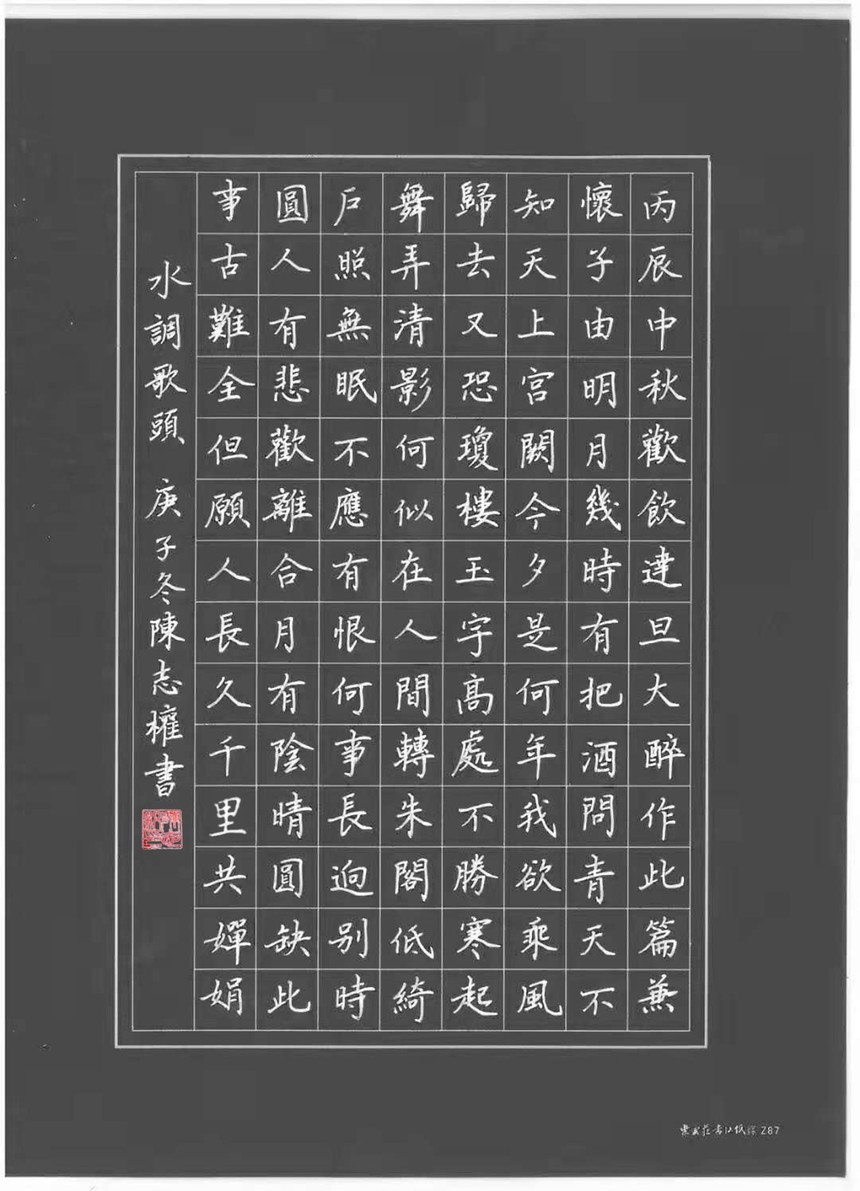 丙辰中秋歡飲達旦大醉作此篇兼
懷子由明月幾時有把酒問青天不
知天上宮闕今夕是何年我欲乘風
歸去又恐瓊樓玉宇高處不勝寒起
舞弄清影何似在人間轉朱閣低綺
戶照無眠不應有恨何事長逈别時
圓人有悲歡離合月有陰晴圓缺此
事古難全但願人長久千里共嬋娟
水調歌頭 庚子冬陳志權書
287